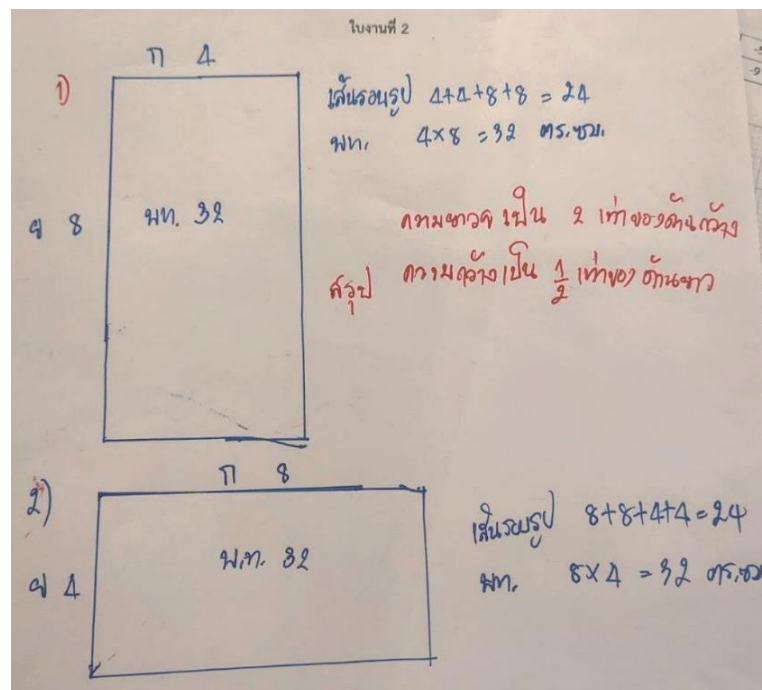 ใบงานที่ 2
ก 4
1)
เส้นรอบรูป 4+4+8+8 = 24
พท. 4×8 = 32 ตร.ซม.
ย 8
พท. 32
ความยาว เป็น 2 เท่าของด้านกว้าง
สรุป ความกว้างเป็น 1/2 เท่าของ ด้านยาว
2)
ก 8
ย 4
พ.ท. 32
เส้นรอบรูป 8+8+4+4=24
พท. 8×4 = 32 ตร.ซม